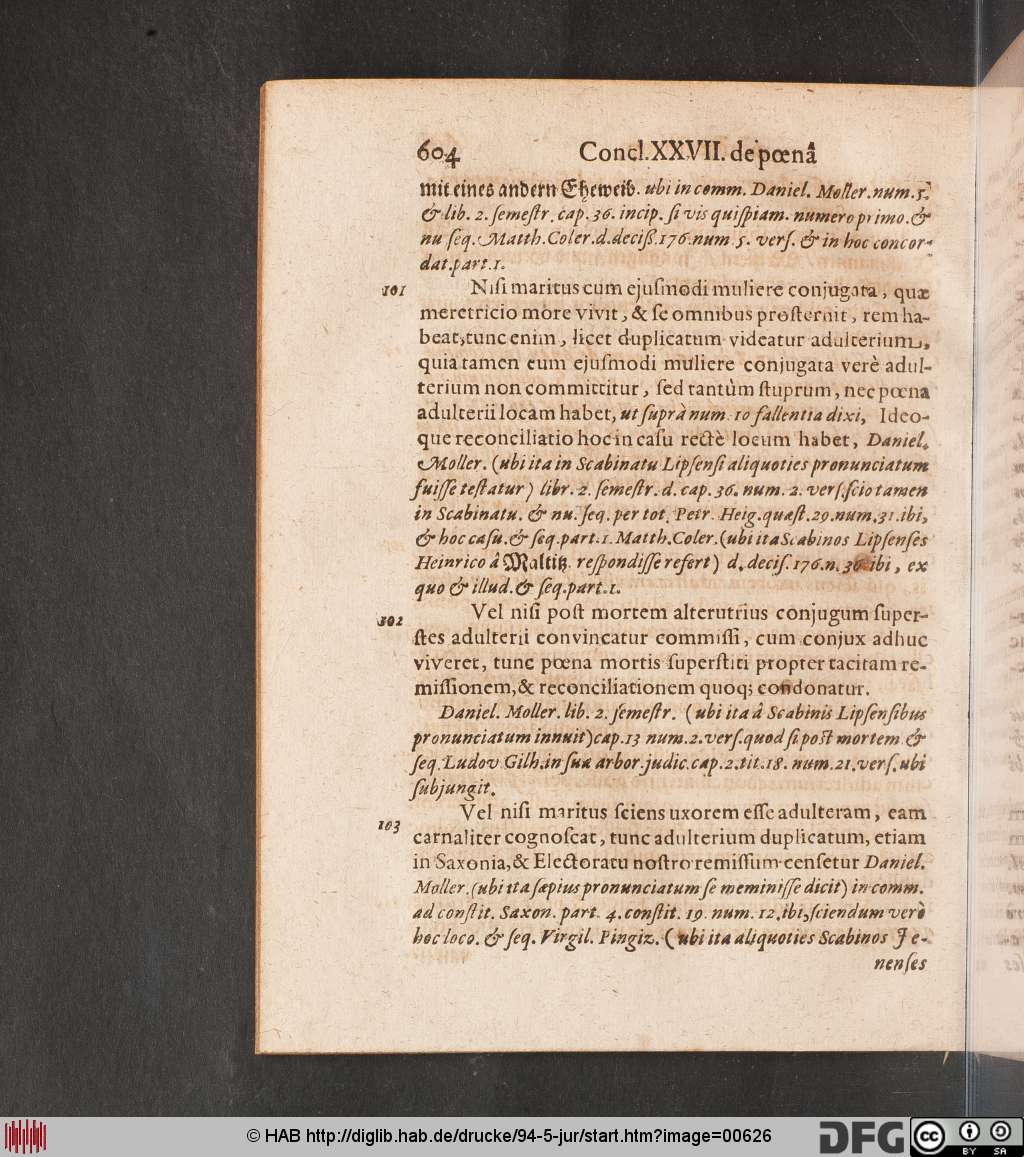 604 Concl. XXVII. de pœnâ
mit eines andern Eheweib. ubi in comm. Daniel. Moller. num. 5.
& lib. 2. ſemeſtr. cap. 36. incip. ſi vis quiſpiam. numero primo. &
nu ſeq. Matth. Coler. d. deciß. 176. num 5. verſ. & in hoc concor-
dat. part. 1.
101 Niſi maritus cum ejuſmodi muliere conjugata, quæ
meretricio more vivit, & ſe omnibus proſternit, rem ha-
beat; tunc enim, licet duplicatum videatur adulterium,
quia tamen cum ejuſmodi muliere conjugata verè adul-
terium non committitur, ſed tantùm ſtuprum, nec pœna
adulterii locam habet, ut ſuprà num. 10 fallentia dixi, Ideo-
que reconciliatio hoc in caſu rectè locum habet, Daniel.
Moller. (ubi ita in Scabinatu Lipſenſi aliquoties pronunciatum
fuiſſe teſtatur) libr. 2. ſemeſtr. d. cap. 36. num. 2. verſ. ſcio tamen
in Scabinatu. & nu. ſeq. per tot. Petr. Heig. quæſt. 29. num. 31. ibi,
& hoc caſu. & ſeq. part. 1. Matth. Coler. (ubi ita Scabinos Lipſenſes
Heinrico â Maltitz. reſpondiſſe refert) d. deciſ. 176. n. 36. ibi, ex
quo & illud. & ſeq. part. 1.
102 Vel niſi poſt mortem alterutrius conjugum ſuper-
ſtes adulterii convincatur commiſſi, cum conjux adhuc
viveret, tunc pœna mortis ſuperſtiti propter tacitam re-
miſſionem, & reconciliationem quoq; condonatur.
Daniel. Moller. lib. 2. ſemeſtr. (ubi ita â Scabinis Lipſenſibus
pronunciatum innuit) cap. 13 num. 2. verſ. quod ſi poſt mortem &
ſeq. Ludov Gilh. in ſua arbor. judic. cap. 2. tit. 18. num. 21. verſ. ubi
ſubjungit.
103 Vel niſi maritus ſciens uxorem eſſe adulteram, eam
carnaliter cognoſcat, tunc adulterium duplicatum, etiam
in Saxonia, & Electoratu noſtro remiſſum cenſetur Daniel.
Moller. (ubi ita ſæpius pronunciatum ſe meminiſſe dicit) in comm.
ad conſtit. Saxon. part. 4. conſtit. 19. num. 12. ibi, ſciendum verò
hoc loco. & ſeq. Virgil. Pingiz. (ubi ita aliquoties Scabinos Je-
nenſes
© HAB http://diglib.hab.de/drucke/94-5-jur/start.htm?image=00626
DFG CC BY SA